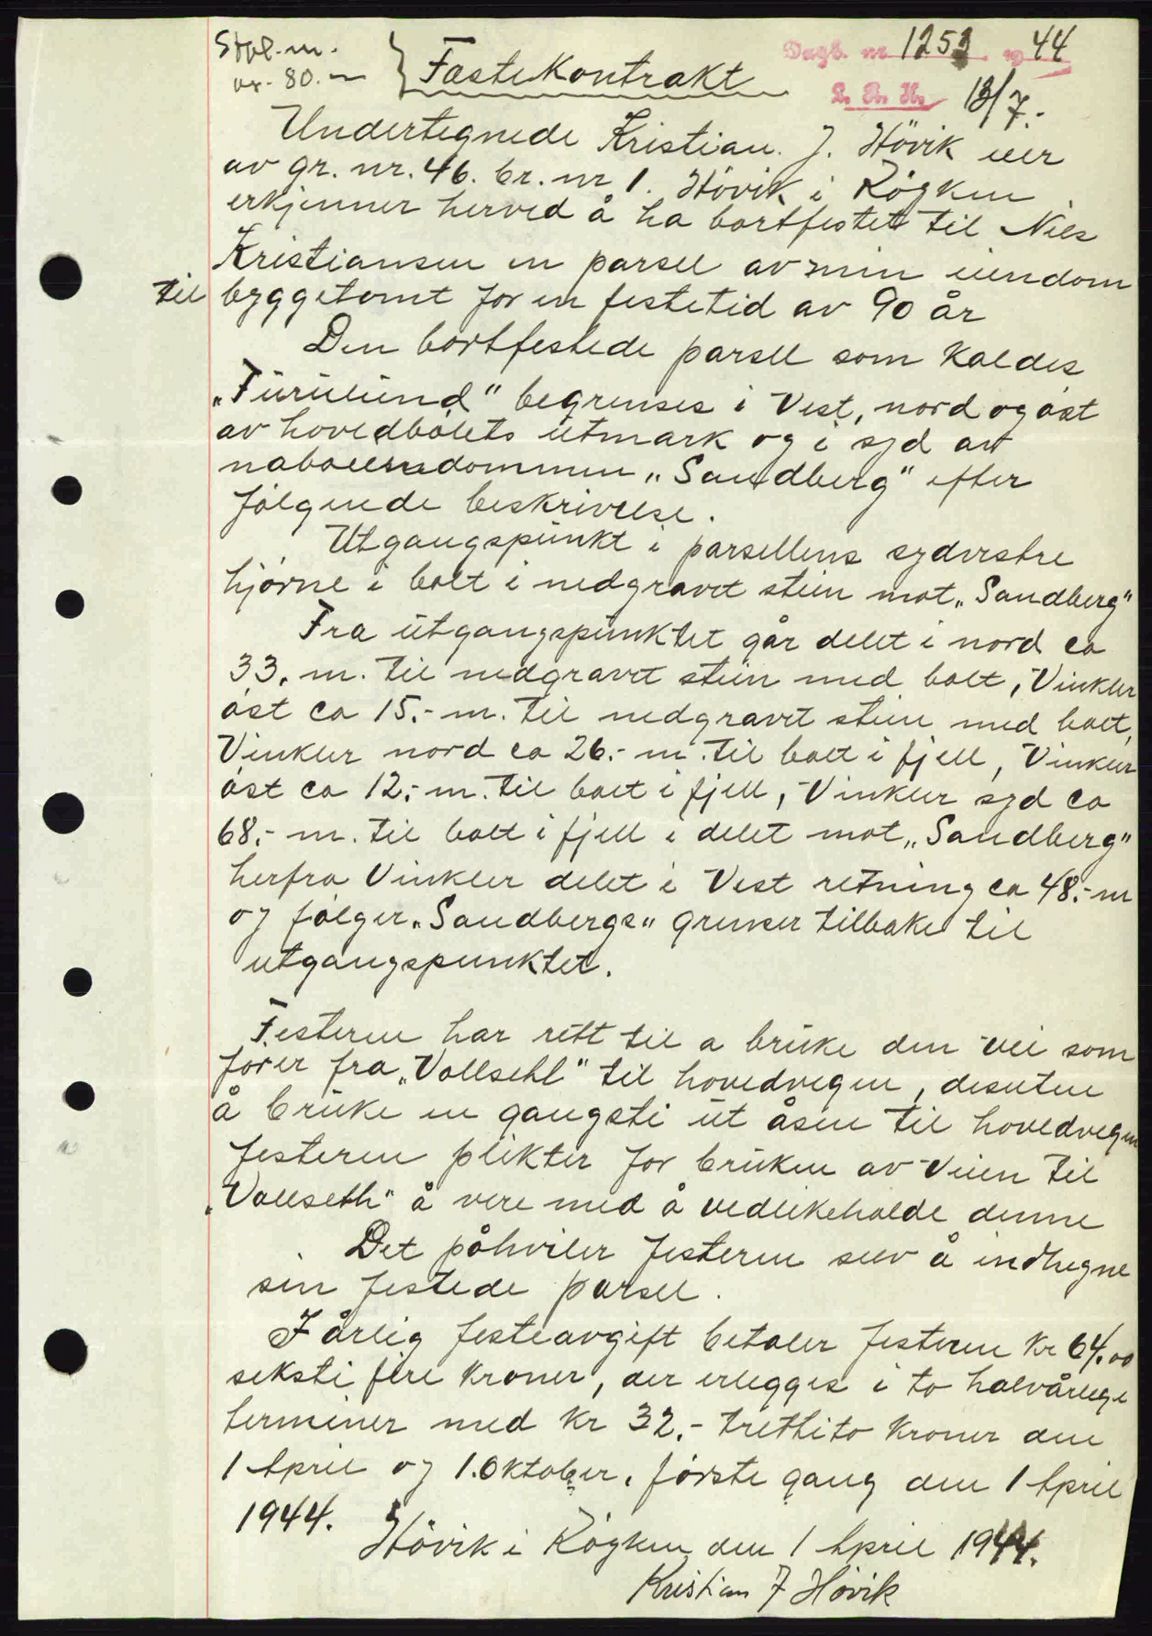 Stpl.m.
kr. 80.-
Fæstekontrakt
Dagb. nr. 1253 19 44
L. R. H. 13/7.-
Undertegnede Kristian. J. Hövik eier
av gr. nr. 46. br. nr 1. Hövik i Röyken
erkjenner herved å ha bortfestet til Nils
Kristiansen en parsell av min eiendom
til byggetomt for en festetid av 90 år
Den bortfestede parsell som kaldes
„Furulund" begrenses i Vest, nord og öst
av hovedbölets utmark og i syd av
naboeiendommen „Sandberg" efter
fölgende beskrivelse.
Utgangspunkt i parsellens sydvestre
hjörne i bolt i nedgravet stein mot „Sandberg"
Fra utgangspunktet går delet i nord ca
33. m. til nedgravet stein med bolt, Vinkler
öst ca 15.- m. til nedgravet stein med bolt,
Vinkler nord ca 26.- m. til bolt i fjell, Vinkler
öst ca 12.- m. til bolt i fjell, Vinkler syd ca
68.- m. til bolt i fjell i delet mot „Sandberg"
herfra Vinkler delet i Vest retning ca 48.- m
og fölger „Sandbergs" grenser tilbake til
utgangspunktet.
Festeren har rett til a bruke den vei som
förer fra „Vollsethl" til hovedvegen, desuten
å bruke en gangsti ut åsen til hovedvegen
festeren plikter for bruken av veien til
„Vollseth" å vere med å vedlikeholde denne
Det påhviler festeren selv å indhegne
sin festede parsell.
I årlig festeavgift betaler festeren kr 64.00
seksti fire kroner, der erlegges i to halvårlige
terminer med kr 32.- trettito kroner den
1 April og 1. Oktober. förste gang den 1 April
1944.
Hövik i Röyken den 1 April 1944.
Kristian J Hövik